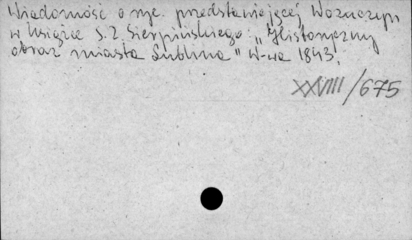 Wiadomość o ryc. przedstawiającej Woźniczyn
w książce S. Z. Sierpińskiego: „Historyczny
obraz miasta Lublina" W-wa 1843.
XXVIII/675